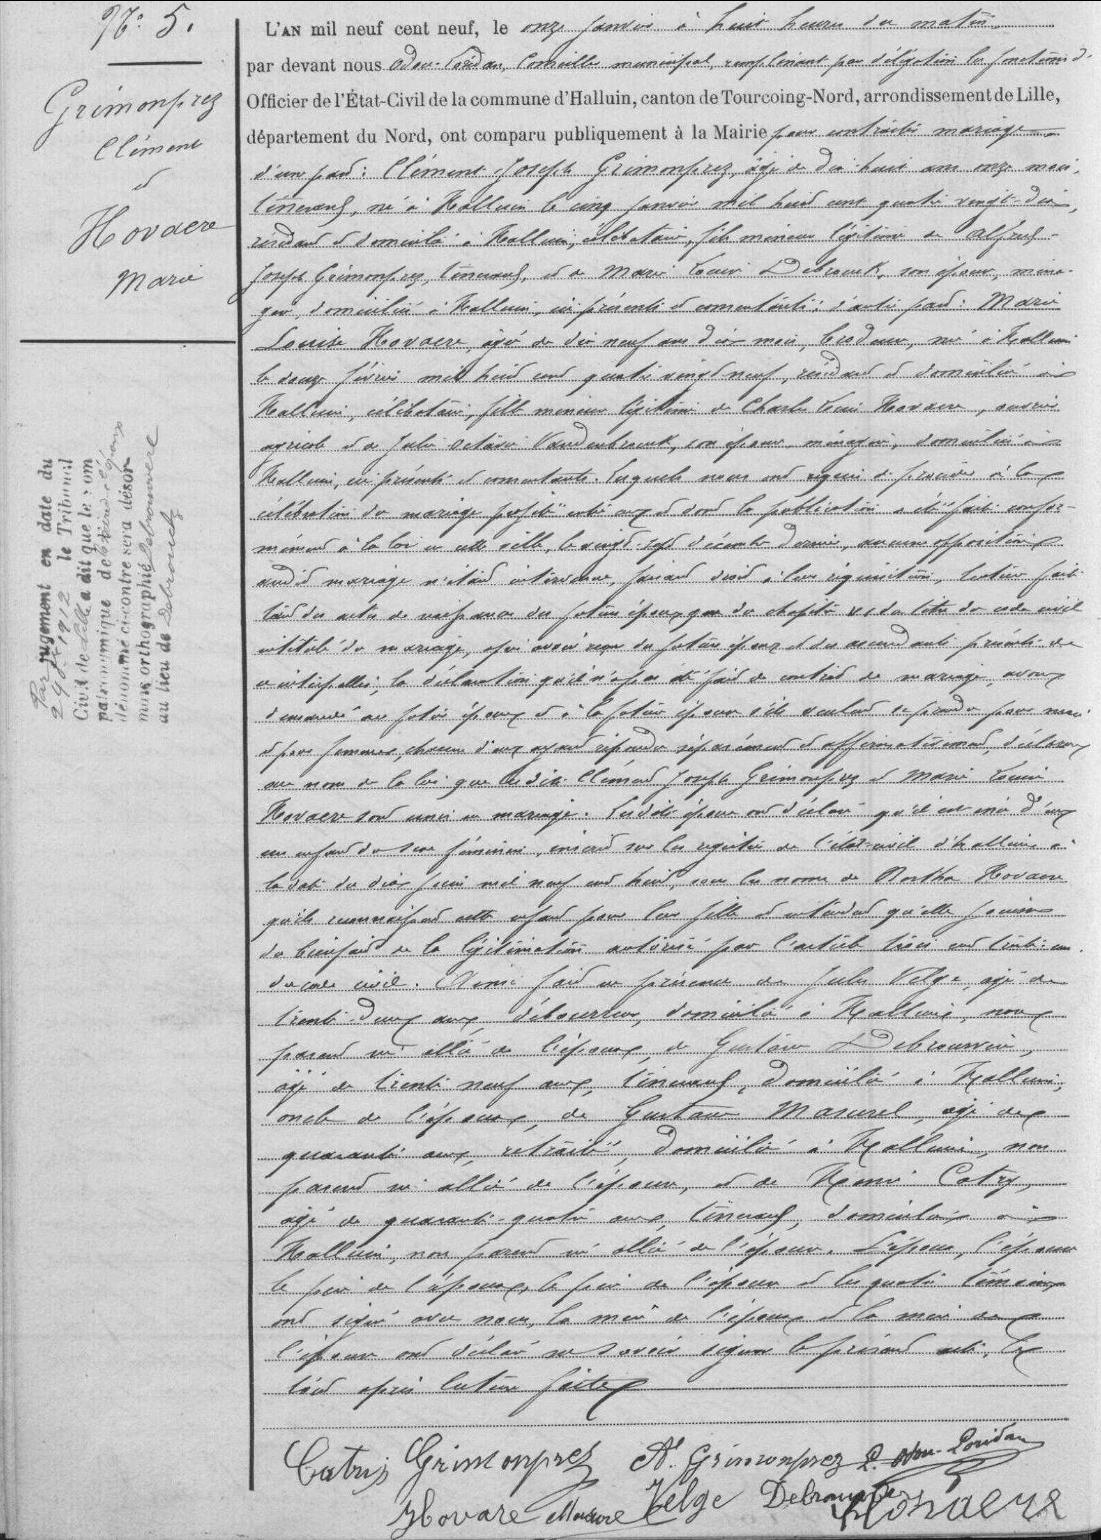 N° 5.
Grimonprez
Clément
et
Hovaere
Marie
L'AN mil neuf cent neuf, le onze janvier à huit heures du matin
par devant nous Odou-Loridan, Conseiller municipal, remplissant par délégation les fonctions d'
Officier de l'État-Civil de la commune d'Halluin, canton de Tourcoing-Nord, arrondissement de Lille,
département du Nord, ont comparu publiquement à la Mairie pour contracter mariage
d'une part: Clément Joseph Grimonprez, âgé de dix huit ans onze mois,
tisserand, né à Halluin le cinq janvier mil huit cent quatre vingt-dix,
résidant et domicilié à Halluin, célibataire, fils mineur légitime de Alfred-
Joseph Grimonprez, tisserand, et de Marie Louise Debrouck, son épouse, ména-
gère, domiciliés à Halluin, ici présents et consentants; d'autre part: Marie
Louise Hovaere, âgée de dix neuf ans dix mois, brodeuse, née à Halluin
le douze février mil huit cent quatre vingt neuf, résidant et domiciliée à
Halluin, célibataire, fille mineure légitime de Charles Louis Hovaere, ouvrier
agricole et de Julie Octavie Vandenbrouck, son épouse ménagère, domiciliés à
Halluin, ici présents et consentants. Lesquels nous ont requis de procéder à la
célébration du mariage projeté entre eux et dont la publication a été faite confor-
mément à la loi en cette ville, le vingt-sept décembre dernier, aucune opposition
audit mariage n'étant intervenue, faisant droit à leur réquisition, lecture faite
tant des actes de naissance des futurs époux que du chapitre VI du titre du code civil
intitulé du mariage, après avoir reçu des futurs époux et des ascendants présents de
ce interpellés, la déclaration qu'il n'a pas été fait de contrat de mariage, avons
demandé au futur époux et à la future épouse s'ils veulent se prendre pour mari
et pour femme, chacun d'eux ayant répondu séparément et affirmativement, déclarons
au nom de la loi que les dits Clément Joseph Grimonprez et Marie Louise
Hovaere sont unis en mariage. Lesdits époux ont déclaré qu'il est né d'eux
un enfant du sexe féminin, inscrit sur les registres de l'état-civil d'Halluin à
la date du dix juin mil neuf cent huit, sous les noms de Bertha Hovaere
qu'ils reconnaissent cette enfant pour leur fille et entendent qu'elle jouisse
du bienfait de la légitimation autorisée par l'article trois cent trente-un
du code civil. Ainsi fait en présence de Jules Velge, âgé de
trente-deux ans, débourreur, domicilié à Halluin, non
parent ni allié de l'époux, de Gustave Debrouwère,
âgé de trente neuf ans, tisserand, domicilié à Halluin,
oncle de l'époux, de Gustave Masurel, âgé de
quarante ans, retraité, domicilié à Halluin, non
parent ni allié de l'épouse, et de Henri Catry,
âgé de quarante-quatre ans, tisserand, domicilié à
Halluin, non parent ni allié de l'épouse. L'époux, l'épouse
le père de l'époux, le père de l'épouse et les quatre témoins
ont signé avec nous, la mère de l'époux et la mère de
l'épouse ont déclaré ne savoir signer le présent acte, le
tout après lecture faite
Par jugement en date du
29 1912 le Tribunal
Civil de Lille a dit que le nom
patronymique de
dénommé ci-contre sera désor-
mais orthographié Debrouwere
au lieu de Debrouck
Catry Grimonprez Ad. Grimonprez P. Odou-Loridan
Hovare Masurel Velge Hovaere